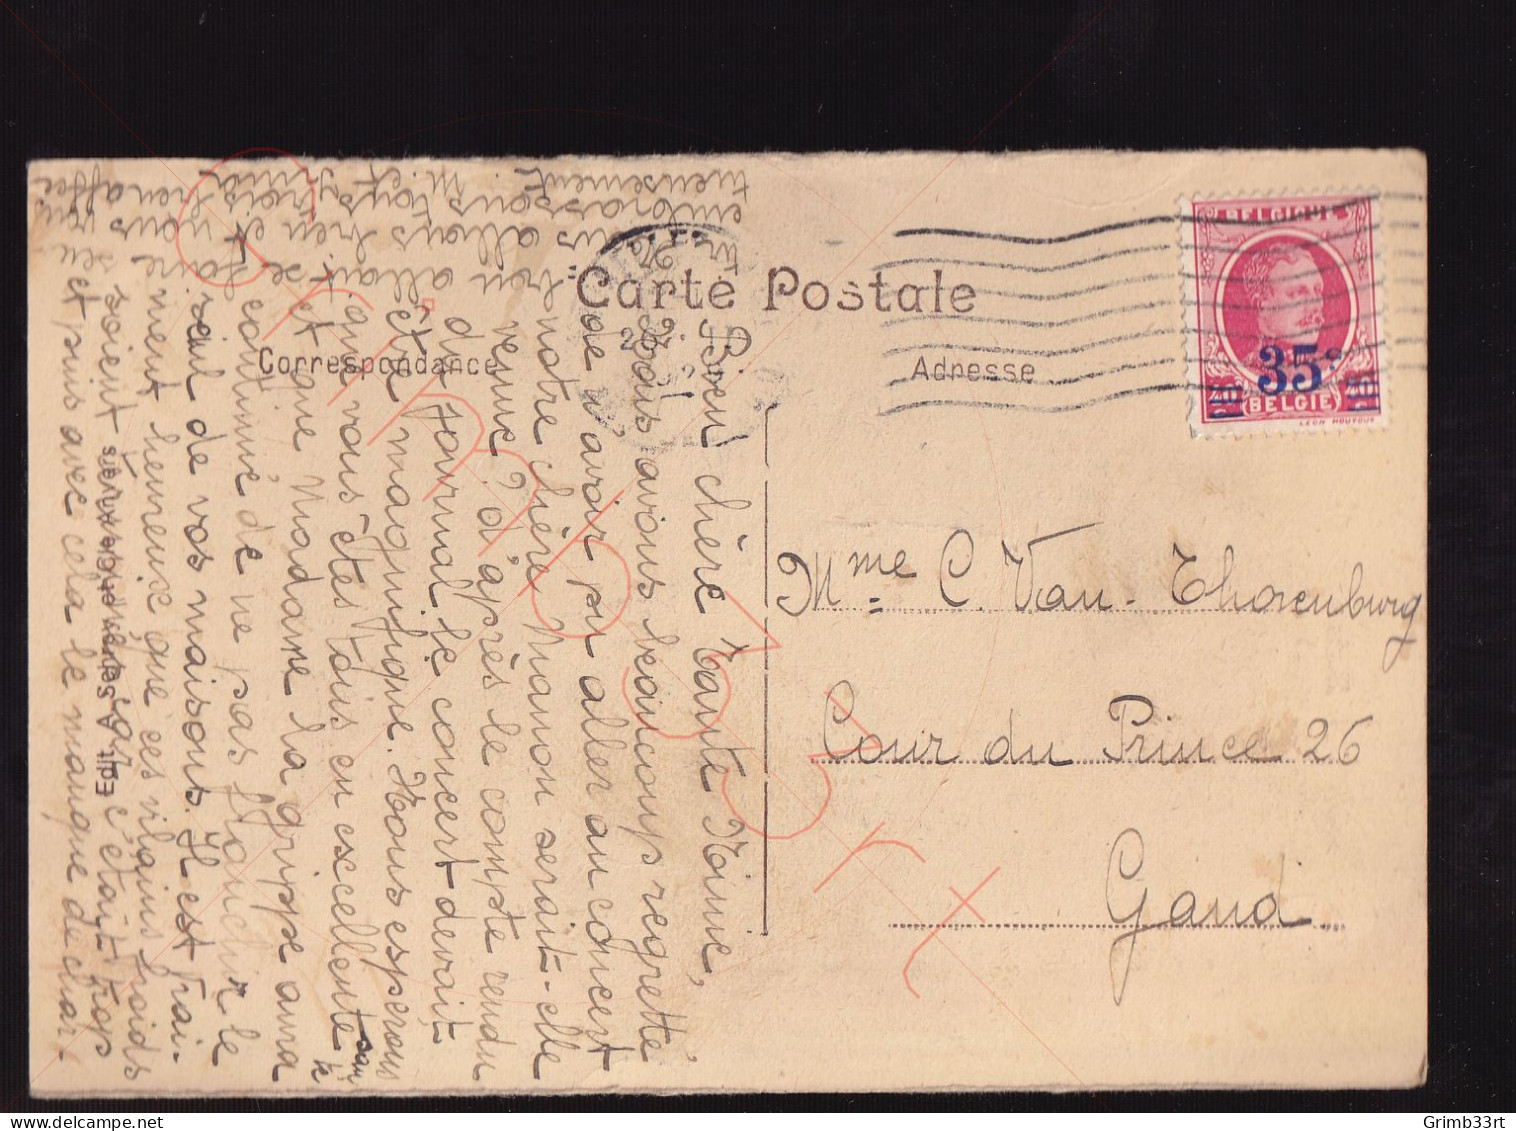 Carte Postale
Correspondance
Adresse
BELGIQUE
35c
40 40
BELGIE
LEON HOUYOUX
Mme C. Van-Thorenburg
Cour du Prince 26
Gand
Bien chère Tante Noime,
Nous avons beaucoup regretté
de n'avoir pu aller au concert
notre chère Manon serait-elle
venue? d'après le compte rendu
du journal le concert devait
être magnifique. Nous espérons
que vous êtes tous en excellente san
té
et que Madame la grippe aura
continué de ne pas franchir le
seuil de vos maisons. Il est vrai-
ment heureux que ces vilains froids
soient car c'était trop
et puis avec cela le manque de char-
Edit. A
bon allait se faire
allions bien et vous
embrassons tous
M. et
trois bien affec
tueusement
Grimb33rt
Grimb33rt